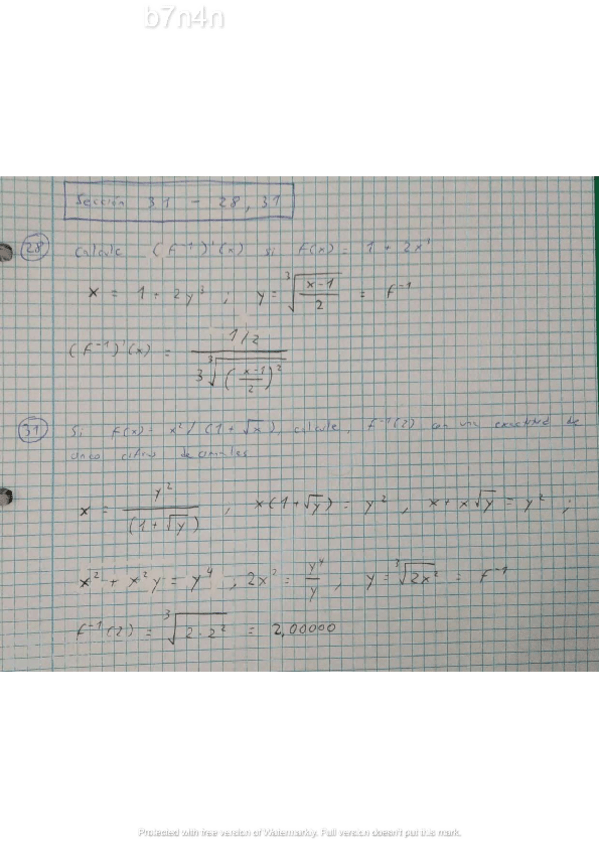 b7n4n
Sección 3.1 - 28, 31
28 Calcule (f⁻¹)'(x) si f(x) = 1 + 2x³
x = 1 + 2y³ ; y = ∛((x-1)/2) = f⁻¹
(f⁻¹)'(x) = (1/2) / (3 ∛(((x-1)/2)²))
31 Si f(x) = x² / (1 + √x), calcule, f⁻¹(2) con una exactitud de
cinco cifras decimales
x = y² / (1 + √y) , x(1 + √y) = y² , x + x√y = y² ;
x² + x²y = y⁴ , 2x² = y⁴/y , y = ∛(2x²) = f⁻¹
f⁻¹(2) = ∛(2·2²) = 2,00000
Protected with free version of Watermarkly. Full version doesn't put this mark.